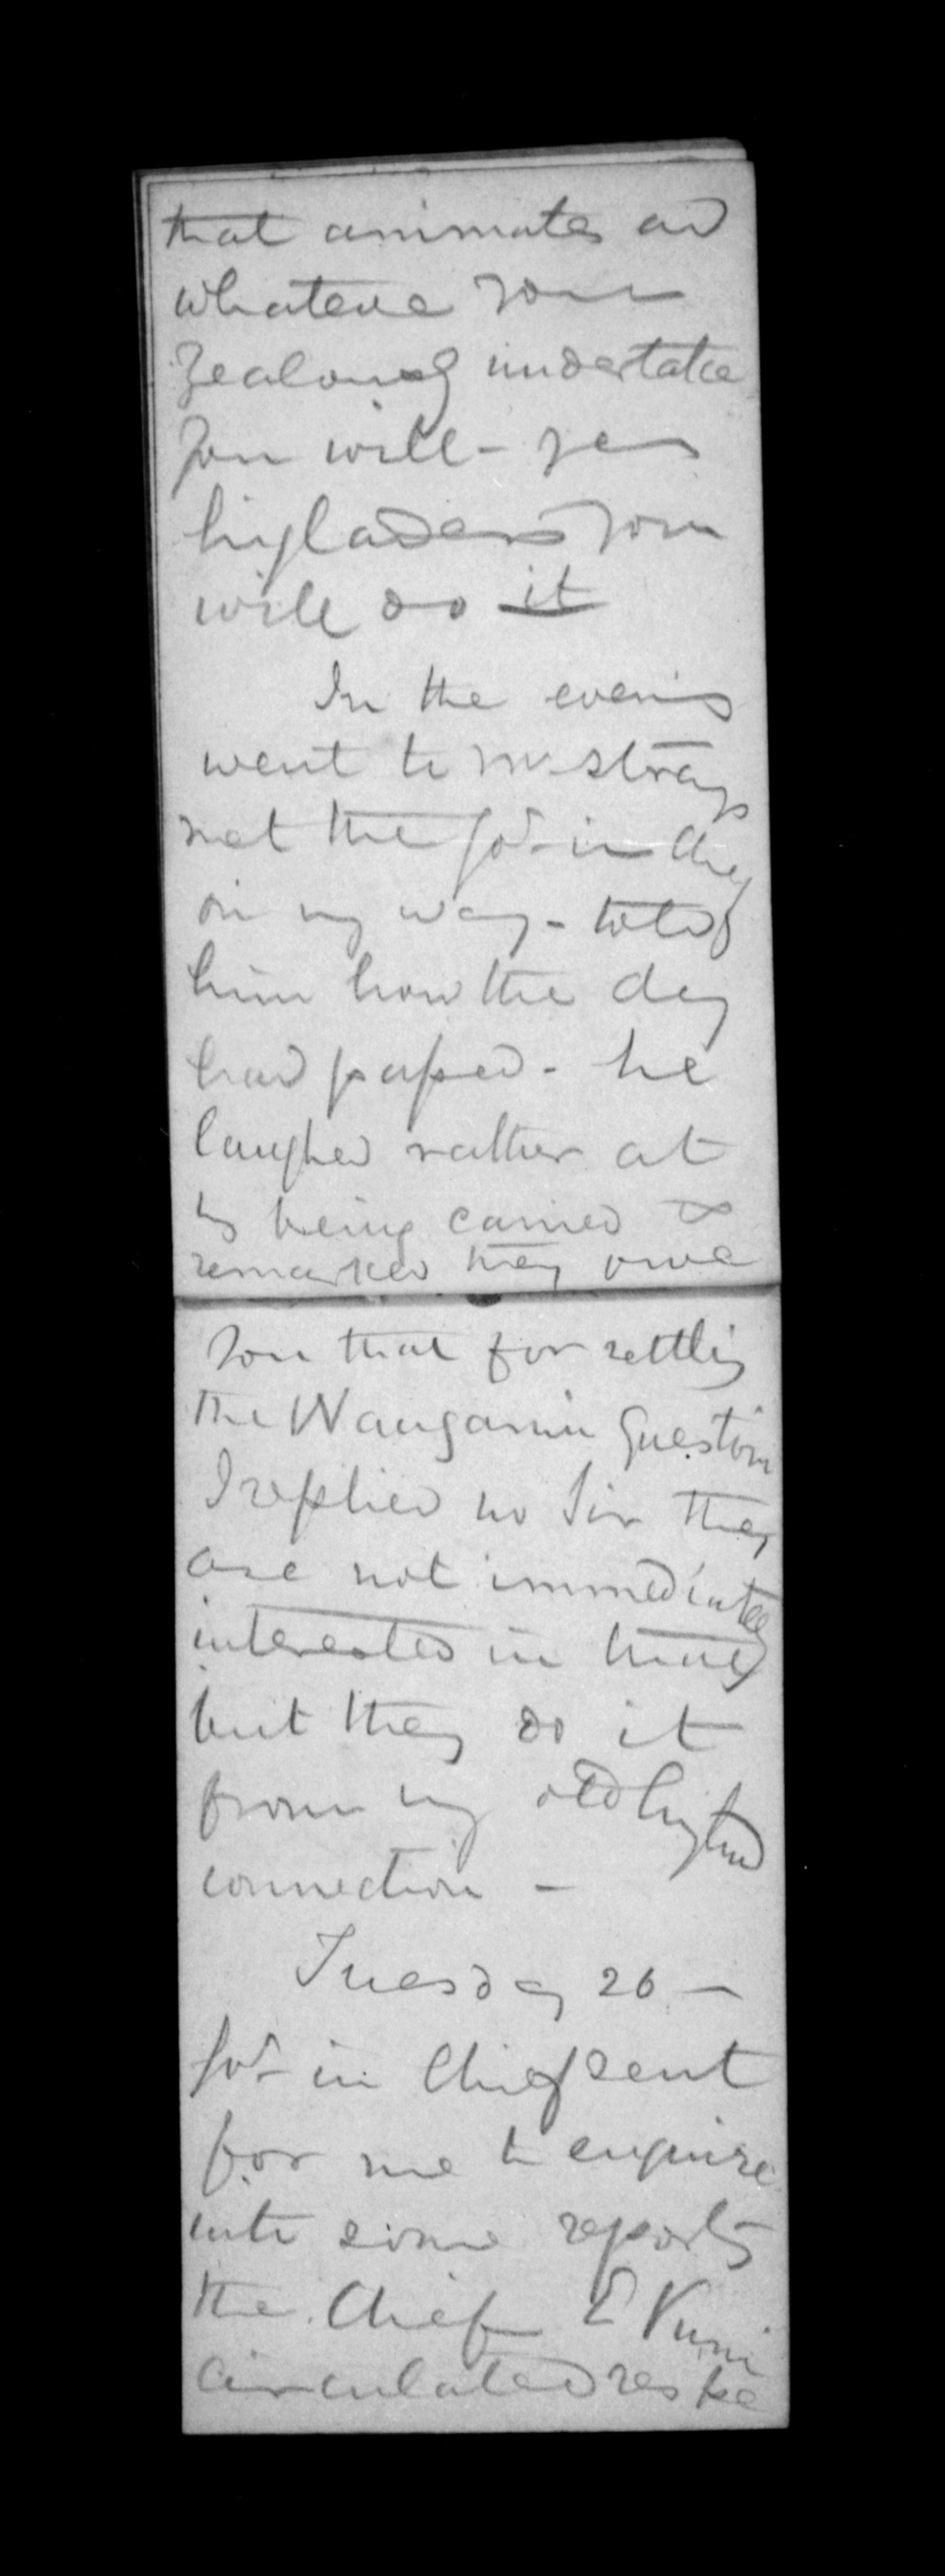 that animates and
whatever you
zealously undertake
you will - yes
highlanders you
will do it
In the evening
went to Mr Strangs
met the Govr in Chief
on my way - told
him how the day
had passed - he
laughed rather at
being carried &
remarked they owe
you that for settling
the Wanganui Question
I replied no Sir they
are not immediately
interested in that
but they do it
from my old highland
connection -
Tuesday 26 -
Govr in Chief sent
for me to enquire
into some reports
the Chief E Kuni
circulated respe